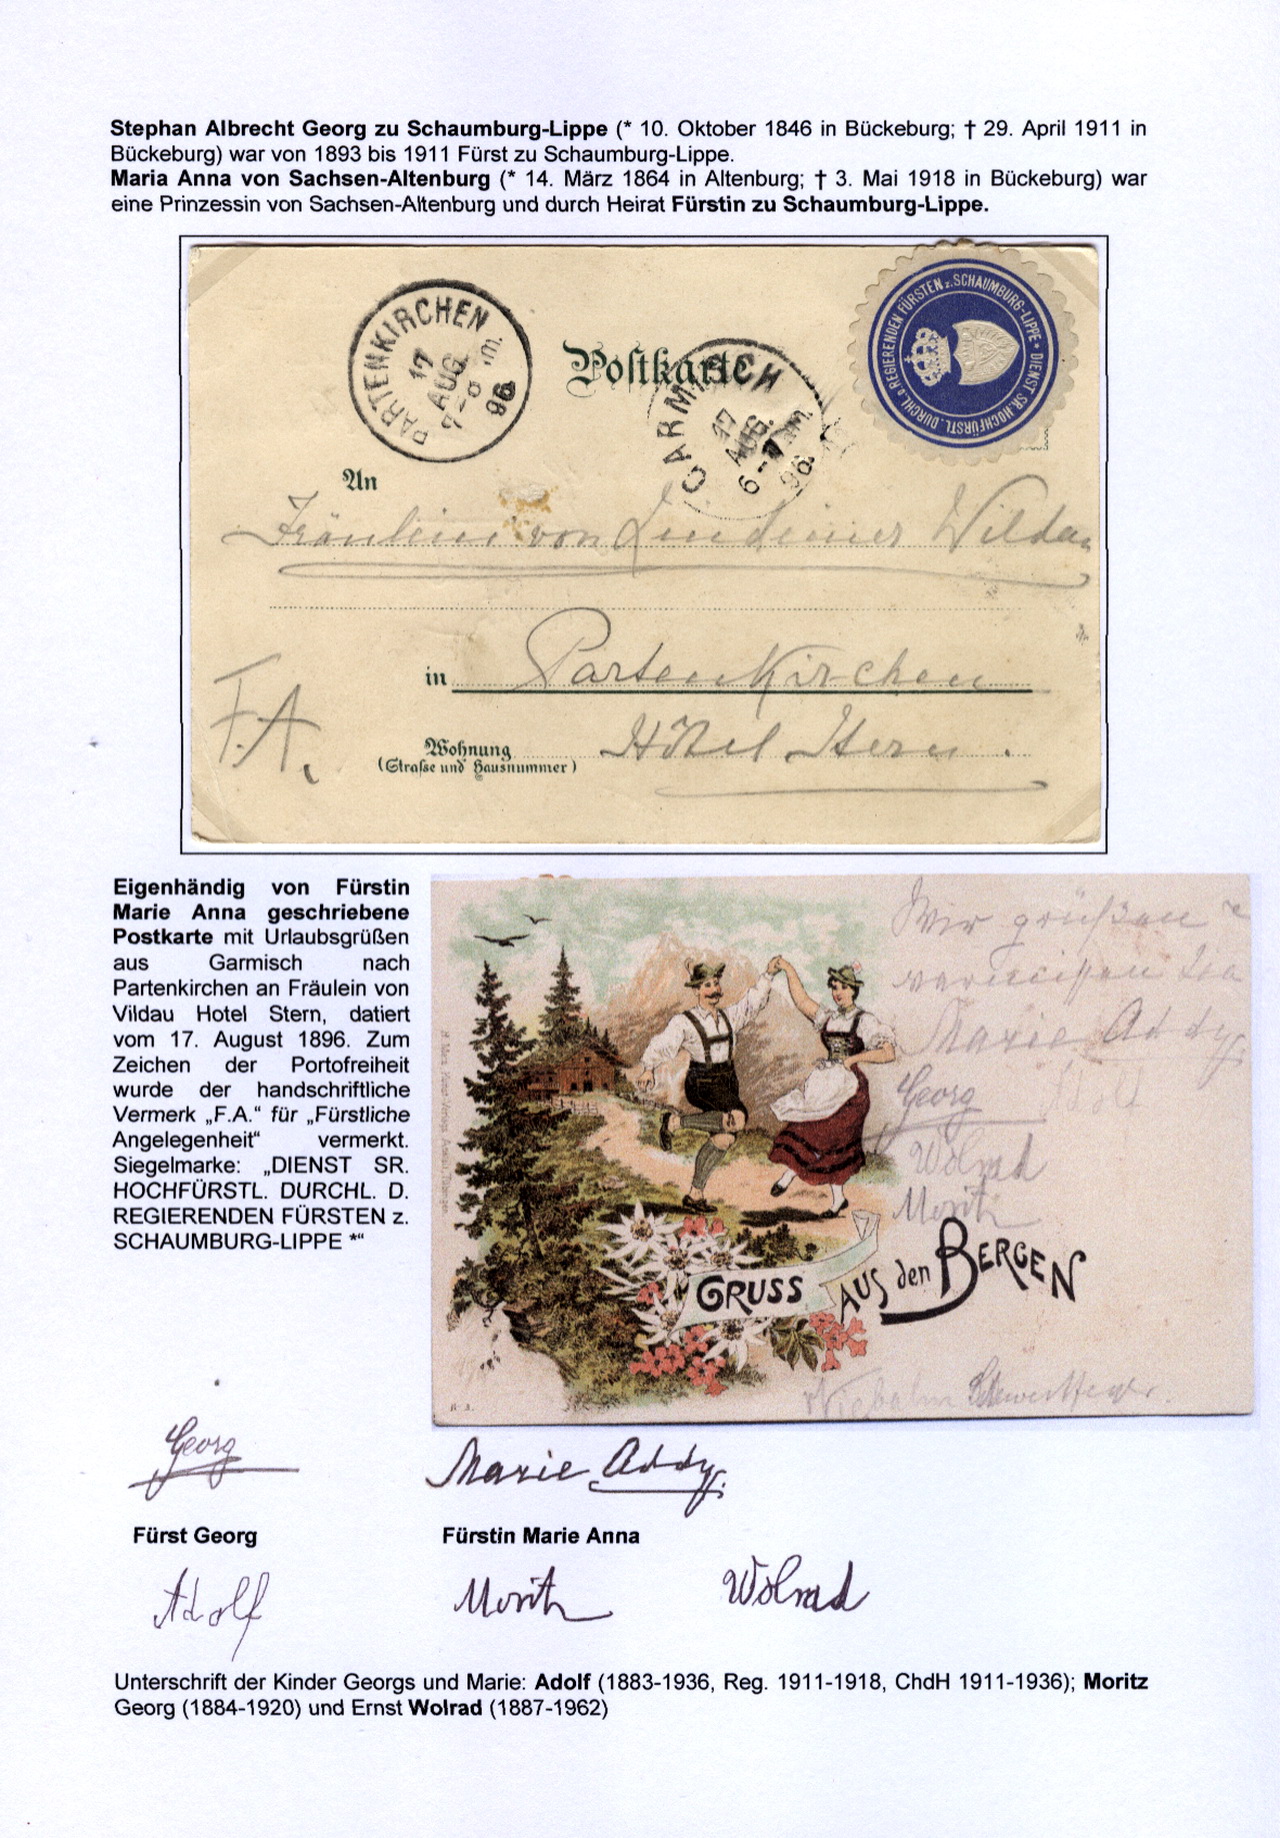 Stephan Albrecht Georg zu Schaumburg-Lippe (* 10. Oktober 1846 in Bückeburg; † 29. April 1911 in
Bückeburg) war von 1893 bis 1911 Fürst zu Schaumburg-Lippe.
Maria Anna von Sachsen-Altenburg (* 14. März 1864 in Altenburg; † 3. Mai 1918 in Bückeburg) war
eine Prinzessin von Sachsen-Altenburg und durch Heirat Fürstin zu Schaumburg-Lippe.
PARTENKIRCHEN
17
AUG.
7-8 m.
96
Postkarte
GARMISCH
17
AUG.
6-7 m.
96.
DIENST SR. HOCHFÜRSTL. DURCHL. D. REGIERENDEN FÜRSTEN z. SCHAUMBURG-LIPPE *
An
Fräulein von Lindeiner Wildau
in Partenkirchen
F.A.
Wohnung Hôtel Stern.
(Straße und Hausnummer)
Eigenhändig von Fürstin
Marie Anna geschriebene
Postkarte mit Urlaubsgrüßen
aus Garmisch nach
Partenkirchen an Fräulein von
Vildau Hotel Stern, datiert
vom 17. August 1896. Zum
Zeichen der Portofreiheit
wurde der handschriftliche
Vermerk „F.A.“ für „Fürstliche
Angelegenheit“ vermerkt.
Siegelmarke: „DIENST SR.
HOCHFÜRSTL. DURCHL. D.
REGIERENDEN FÜRSTEN z.
SCHAUMBURG-LIPPE *“
Wir grüßen
Marie Addy.
Georg Adolf
Wolrad
Moritz
GRUSS AUS den BERGEN
Georg
Marie Addy.
Fürst Georg
Fürstin Marie Anna
Adolf
Moritz
Wolrad
Unterschrift der Kinder Georgs und Marie: Adolf (1883-1936, Reg. 1911-1918, ChdH 1911-1936); Moritz
Georg (1884-1920) und Ernst Wolrad (1887-1962)